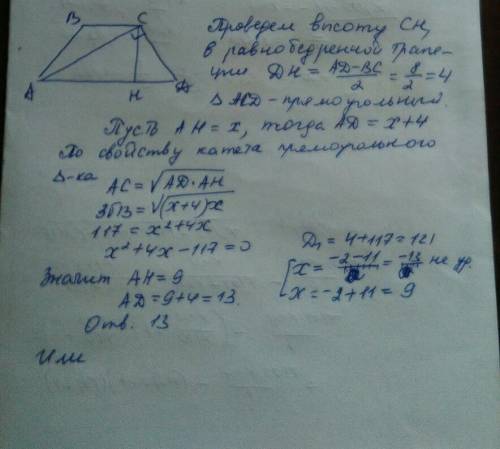 B C
A H D
Проведем высоту CH,
в равнобедренной трапе-
ции DH = \frac{AD-BC}{2} = \frac{8}{2} = 4
Δ ACD - прямоугольный.
Пусть AH = x, тогда AD = x+4
По свойству катета прямоугольного
Δ-ка
AC = √(AD·AH)
3√13 = √((x+4)x)
117 = x² + 4x
x² + 4x - 117 = 0
D₁ = 4+117 = 121
x = -2-11 = -13 не уд.
x = -2+11 = 9
Значит AH = 9
AD = 9+4 = 13.
Отв. 13
Или